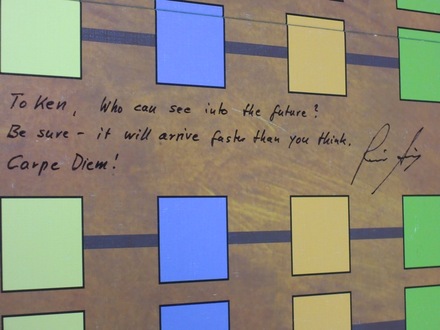 To Ken, Who can see into the future?
Be sure - it will arrive faster than you think.
Carpe Diem!